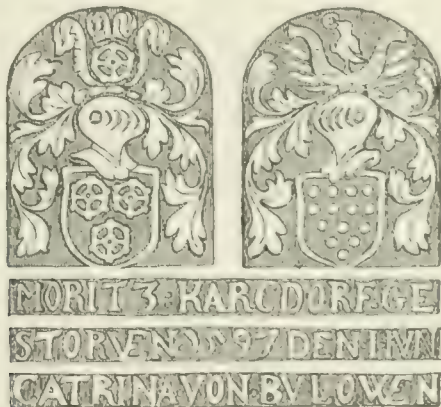 MORITZ·KARCDORF·GE
STORVEN 1597 DEN I IVN
CATRINA VON·BVLOWEN